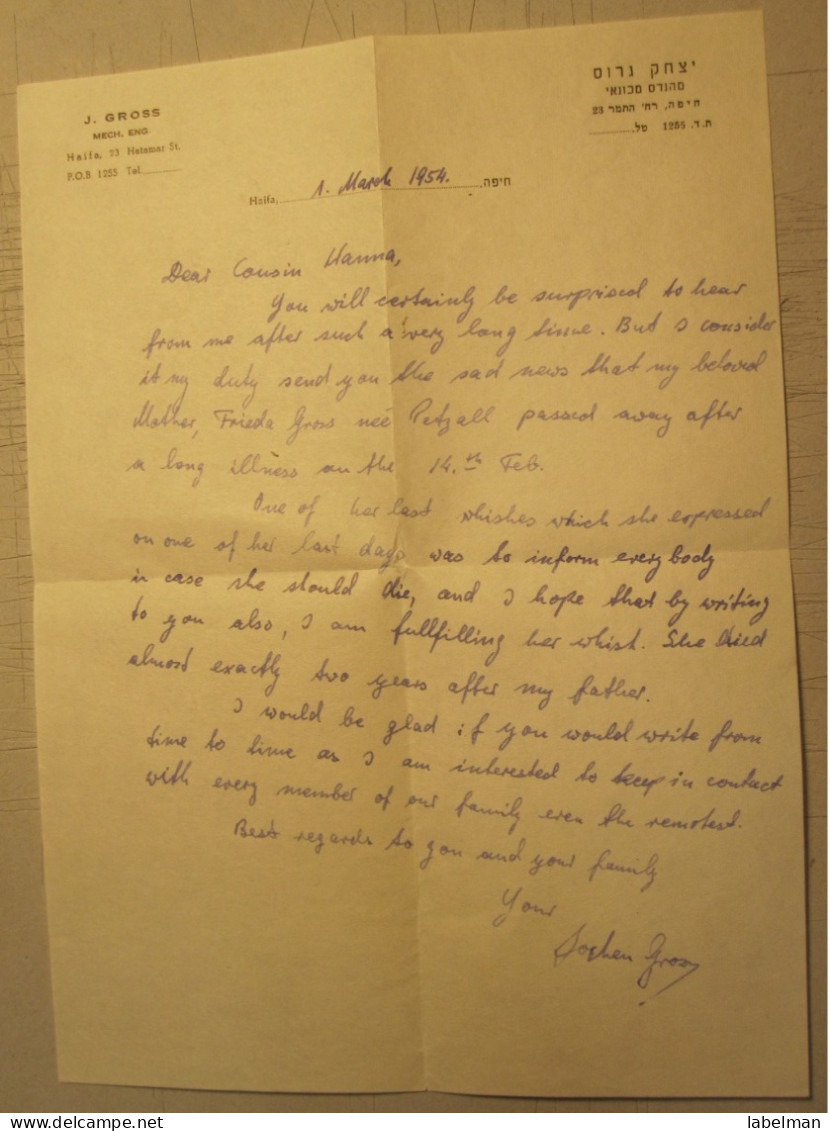 J. GROSS
MECH. ENG
Haifa, 23 Hatamar St.
P.O.B. 1255 Tel.
יצחק גרוס
מהנדס מכונאי
חיפה, רח' התמר 23
ת.ד. 1255 טל.
Haifa, 1. March 1954. חיפה,
Dear Cousin Hanna,
You will certainly be surprised to hear
from me after such a very long time. But I consider
it my duty send you the sad news that my beloved
Mother, Frieda Gross neé Petzall passed away after
a long illness on the 14.th Feb.
One of her last whishes which she expressed
on one of her last days was to inform everybody
in case she should die, and I hope that by writing
to you also, I am fullfilling her whish. She died
almost exactly two years after my father.
I would be glad if you would write from
time to time as I am interested to keep in contact
with every member of our family even the remotest.
Best regards to you and your family
Your
Jochen Gross
labelman
delcampe.net